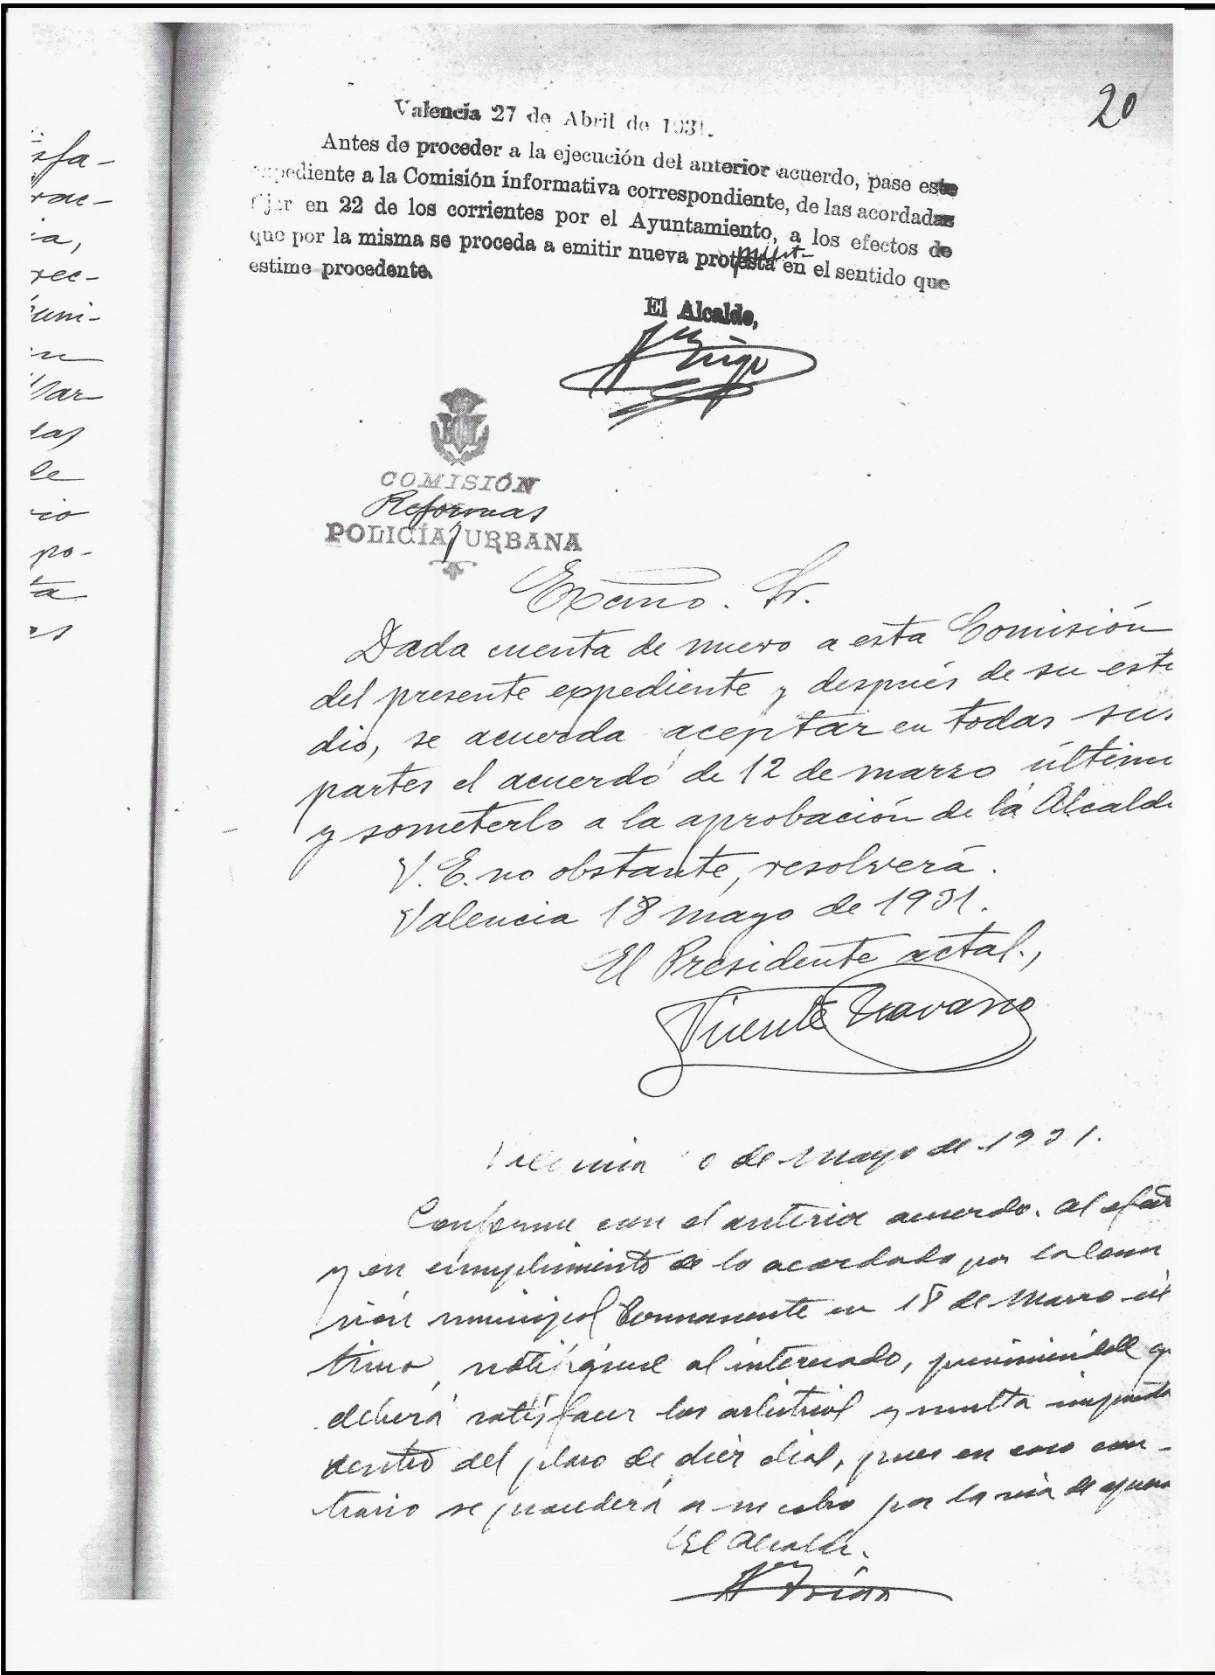 20
Valencia 27 de Abril de 1931.
Antes de proceder a la ejecución del anterior acuerdo, pase este
expediente a la Comisión informativa correspondiente, de las acordadas
fijar en 22 de los corrientes por el Ayuntamiento, a los efectos de
que por la misma se proceda a emitir nueva protesta en el sentido que
estime procedente.
El Alcalde,
isfa-
rac-
ia,
rec-
uni-
n
Mar
sas
de
io
po-
ta
es
COMISIÓN
Reformas
POLICÍA URBANA
Excmo. Sr.
Dada cuenta de nuevo a esta Comisión
del presente expediente y después de su estu
dio, se acuerda aceptar en todas sus
partes el acuerdo de 12 de marzo último
y someterlo a la aprobación de la Alcaldí
V. E. no obstante, resolverá.
Valencia 18 mayo de 1931.
El Presidente actal.,
Vicente Navarro
Valencia 0 de mayo de 1931.
Conforme con el anterior acuerdo. Al efecto
y en cumplimiento de lo acordado por la Comi
sión municipal Permanente en 18 de Marzo úl
timo, notifíquese al interesado, previniéndole q
deberá satisfacer los arbitrios y multa impuesta
dentro del plazo de diez días, pues en caso con-
trario se procederá a su cobro por la vía de apremi
El Alcalde.